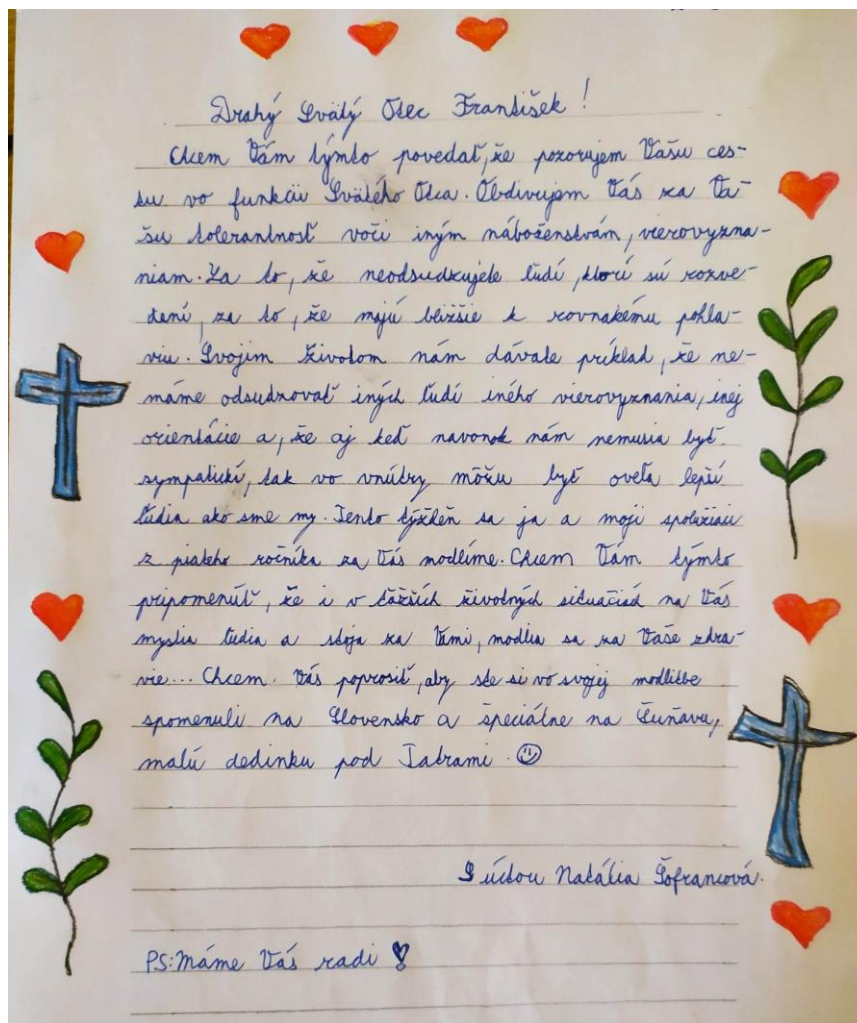 Drahý Svätý Otec František!
Chcem Vám týmto povedať, že pozorujem Vašu ces-
tu vo funkcii Svätého Otca. Obdivujem Vás za Va-
šu tolerantnosť voči iným náboženstvám, vierovyzna-
niam. Za to, že neodsudzujete ľudí, ktorí sú rozve-
dení, za to, že majú bližšie k rovnakému pohla-
viu. Svojim životom nám dávate príklad, že ne-
máme odsudzovať iných ľudí iného vierovyznania, inej
orientácie a, že aj keď navonok nám nemusia byť
sympatickí, tak vo vnútry môžu byť oveľa lepší
ľudia ako sme my. Tento týždeň sa ja a moji spolužiaci
z piateho ročníka za Vás modlíme. Chcem Vám týmto
pripomenúť, že i v ťažších životných situáciách na Vás
myslia ľudia a stoja za Vami, modlia sa za Vaše zdra-
vie... Chcem Vás poprosiť, aby ste si vo svojej modlitbe
spomenuli na Slovensko a špeciálne na Šuňavu,
malú dedinku pod Tatrami. ☺
S úctou Natália Šofrancová.
PS: Máme Vás radi!